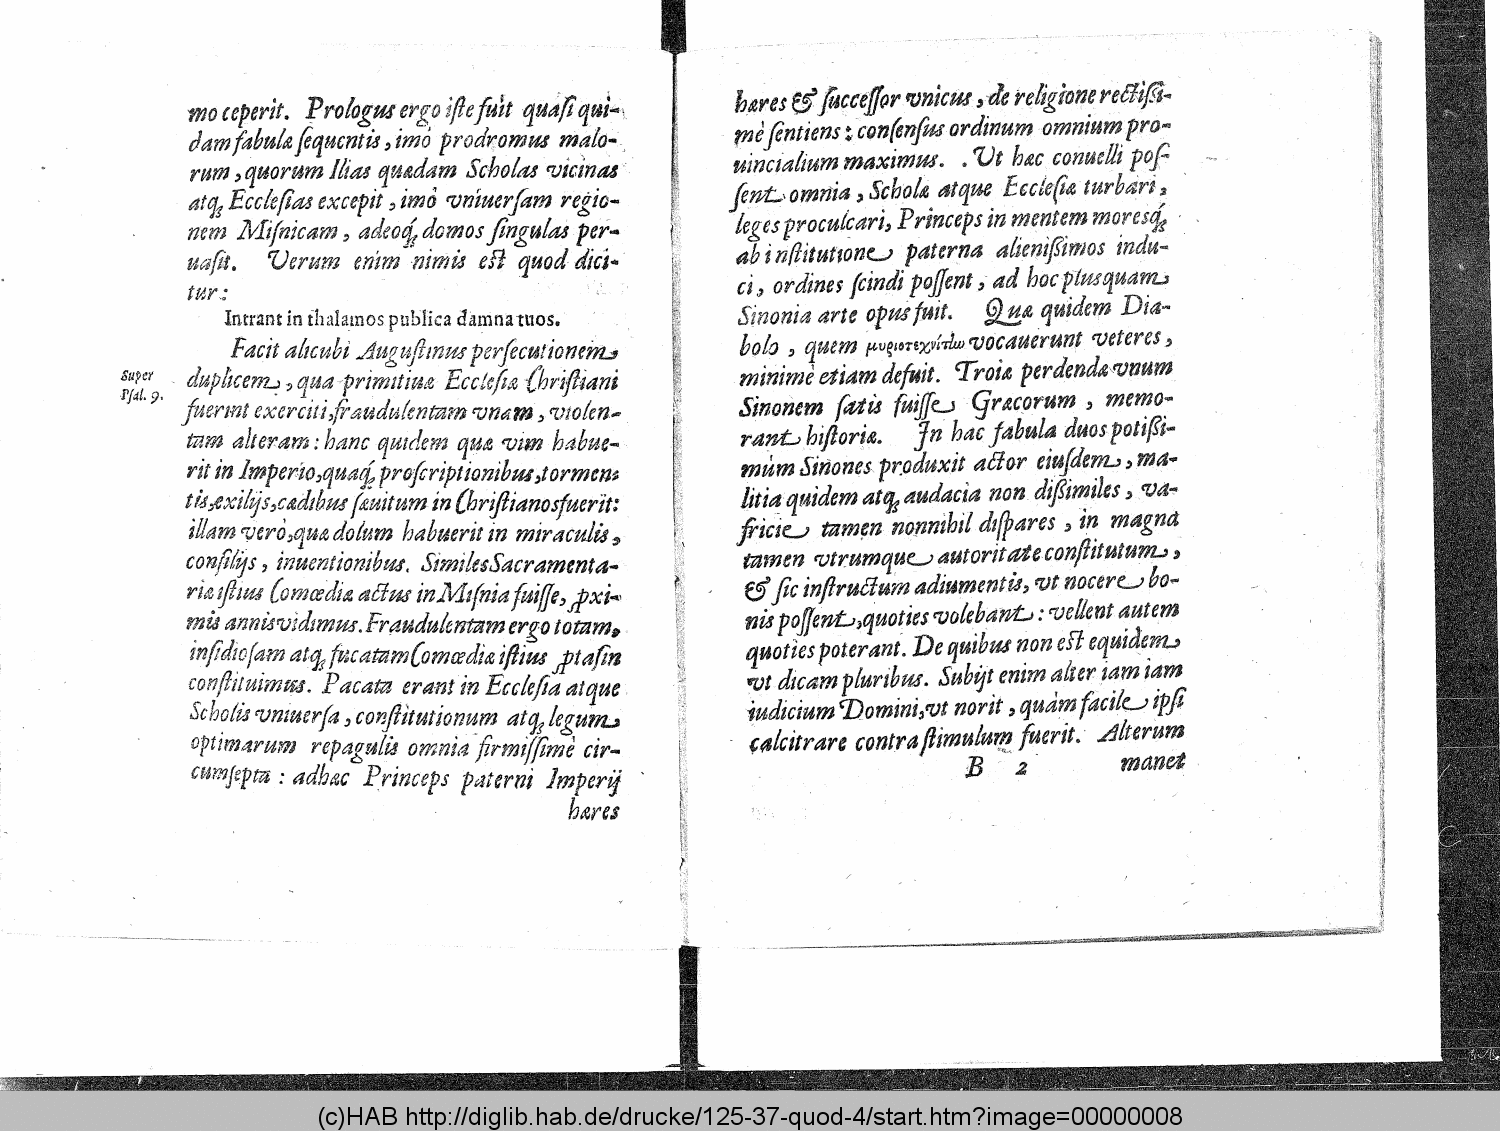 mo ceperit. Prologus ergo iſte fuit quaſi qui-
dam fabulæ ſequentis, imò prodromus malo-
rum, quorum Ilias quædam Scholas vicinas
atq́; Eccleſias excepit, imò vniuerſam regio-
nem Miſnicam, adeoq́; domos ſingulas per-
uaſit. Verum enim nimis eſt quod dici-
tur:
Intrant in thalamos publica damna tuos.
Facit alicubi Auguſtinus perſecutionem
Super
Pſal. 9.
duplicem, qua primitiuæ Eccleſiæ Chriſtiani
fuerint exerciti, fraudulentam vnam, violen-
tam alteram: hanc quidem quæ vim habue-
rit in Imperio, quaq́; proſcriptionibus, tormen-
tis, exilijs, cædibus ſæuitum in Chriſtianos fuerit:
illam verò, quæ dolum habuerit in miraculis,
conſilijs, inuentionibus. Similes Sacramenta-
riæ iſtius Comœdiæ actus in Miſnia fuiſſe, ꝓxi-
mis annis vidimus. Fraudulentam ergo totam,
inſidioſam atq́; fucatam Comœdiæ iſtius ꝓtaſin
conſtituimus. Pacata erant in Eccleſia atque
Scholis vniuerſa, conſtitutionum atq́; legum
optimarum repagulis omnia firmiſſimè cir-
cumſepta: adhæc Princeps paterni Imperij
hæres
hæres & ſucceſſor vnicus, de religione rectiſsi-
mè ſentiens: conſenſus ordinum omnium pro-
uincialium maximus. . Vt hæc conuelli poſ-
ſent omnia, Scholæ atque Eccleſiæ turbari,
leges proculcari, Princeps in mentem moresq́;
ab inſtitutione paterna alieniſsimos indu-
ci, ordines ſcindi poſſent, ad hoc plusquam
Sinonia arte opus fuit. Quæ quidem Dia-
bolo, quem μυριοτεχνίτlω vocauerunt veteres,
minimè etiam defuit. Troiæ perdendæ vnum
Sinonem ſatis fuiſſe Græcorum, memo-
rant hiſtoriæ. In hac fabula duos potiſsi-
mùm Sinones produxit actor eiuſdem, ma-
litia quidem atq́; audacia non diſsimiles, va-
fricie tamen nonnihil diſpares, in magna
tamen vtrumque autoritate conſtitutum,
& ſic inſtructum adiumentis, vt nocere bo-
nis poſſent, quoties volebant: vellent autem
quoties poterant. De quibus non eſt equidem
vt dicam pluribus. Subijt enim alter iam iam
iudicium Domini, vt norit, quàm facile ipſi
calcitrare contra ſtimulum fuerit. Alterum
B 2 manet
(c)HAB http://diglib.hab.de/drucke/125-37-quod-4/start.htm?image=00000008